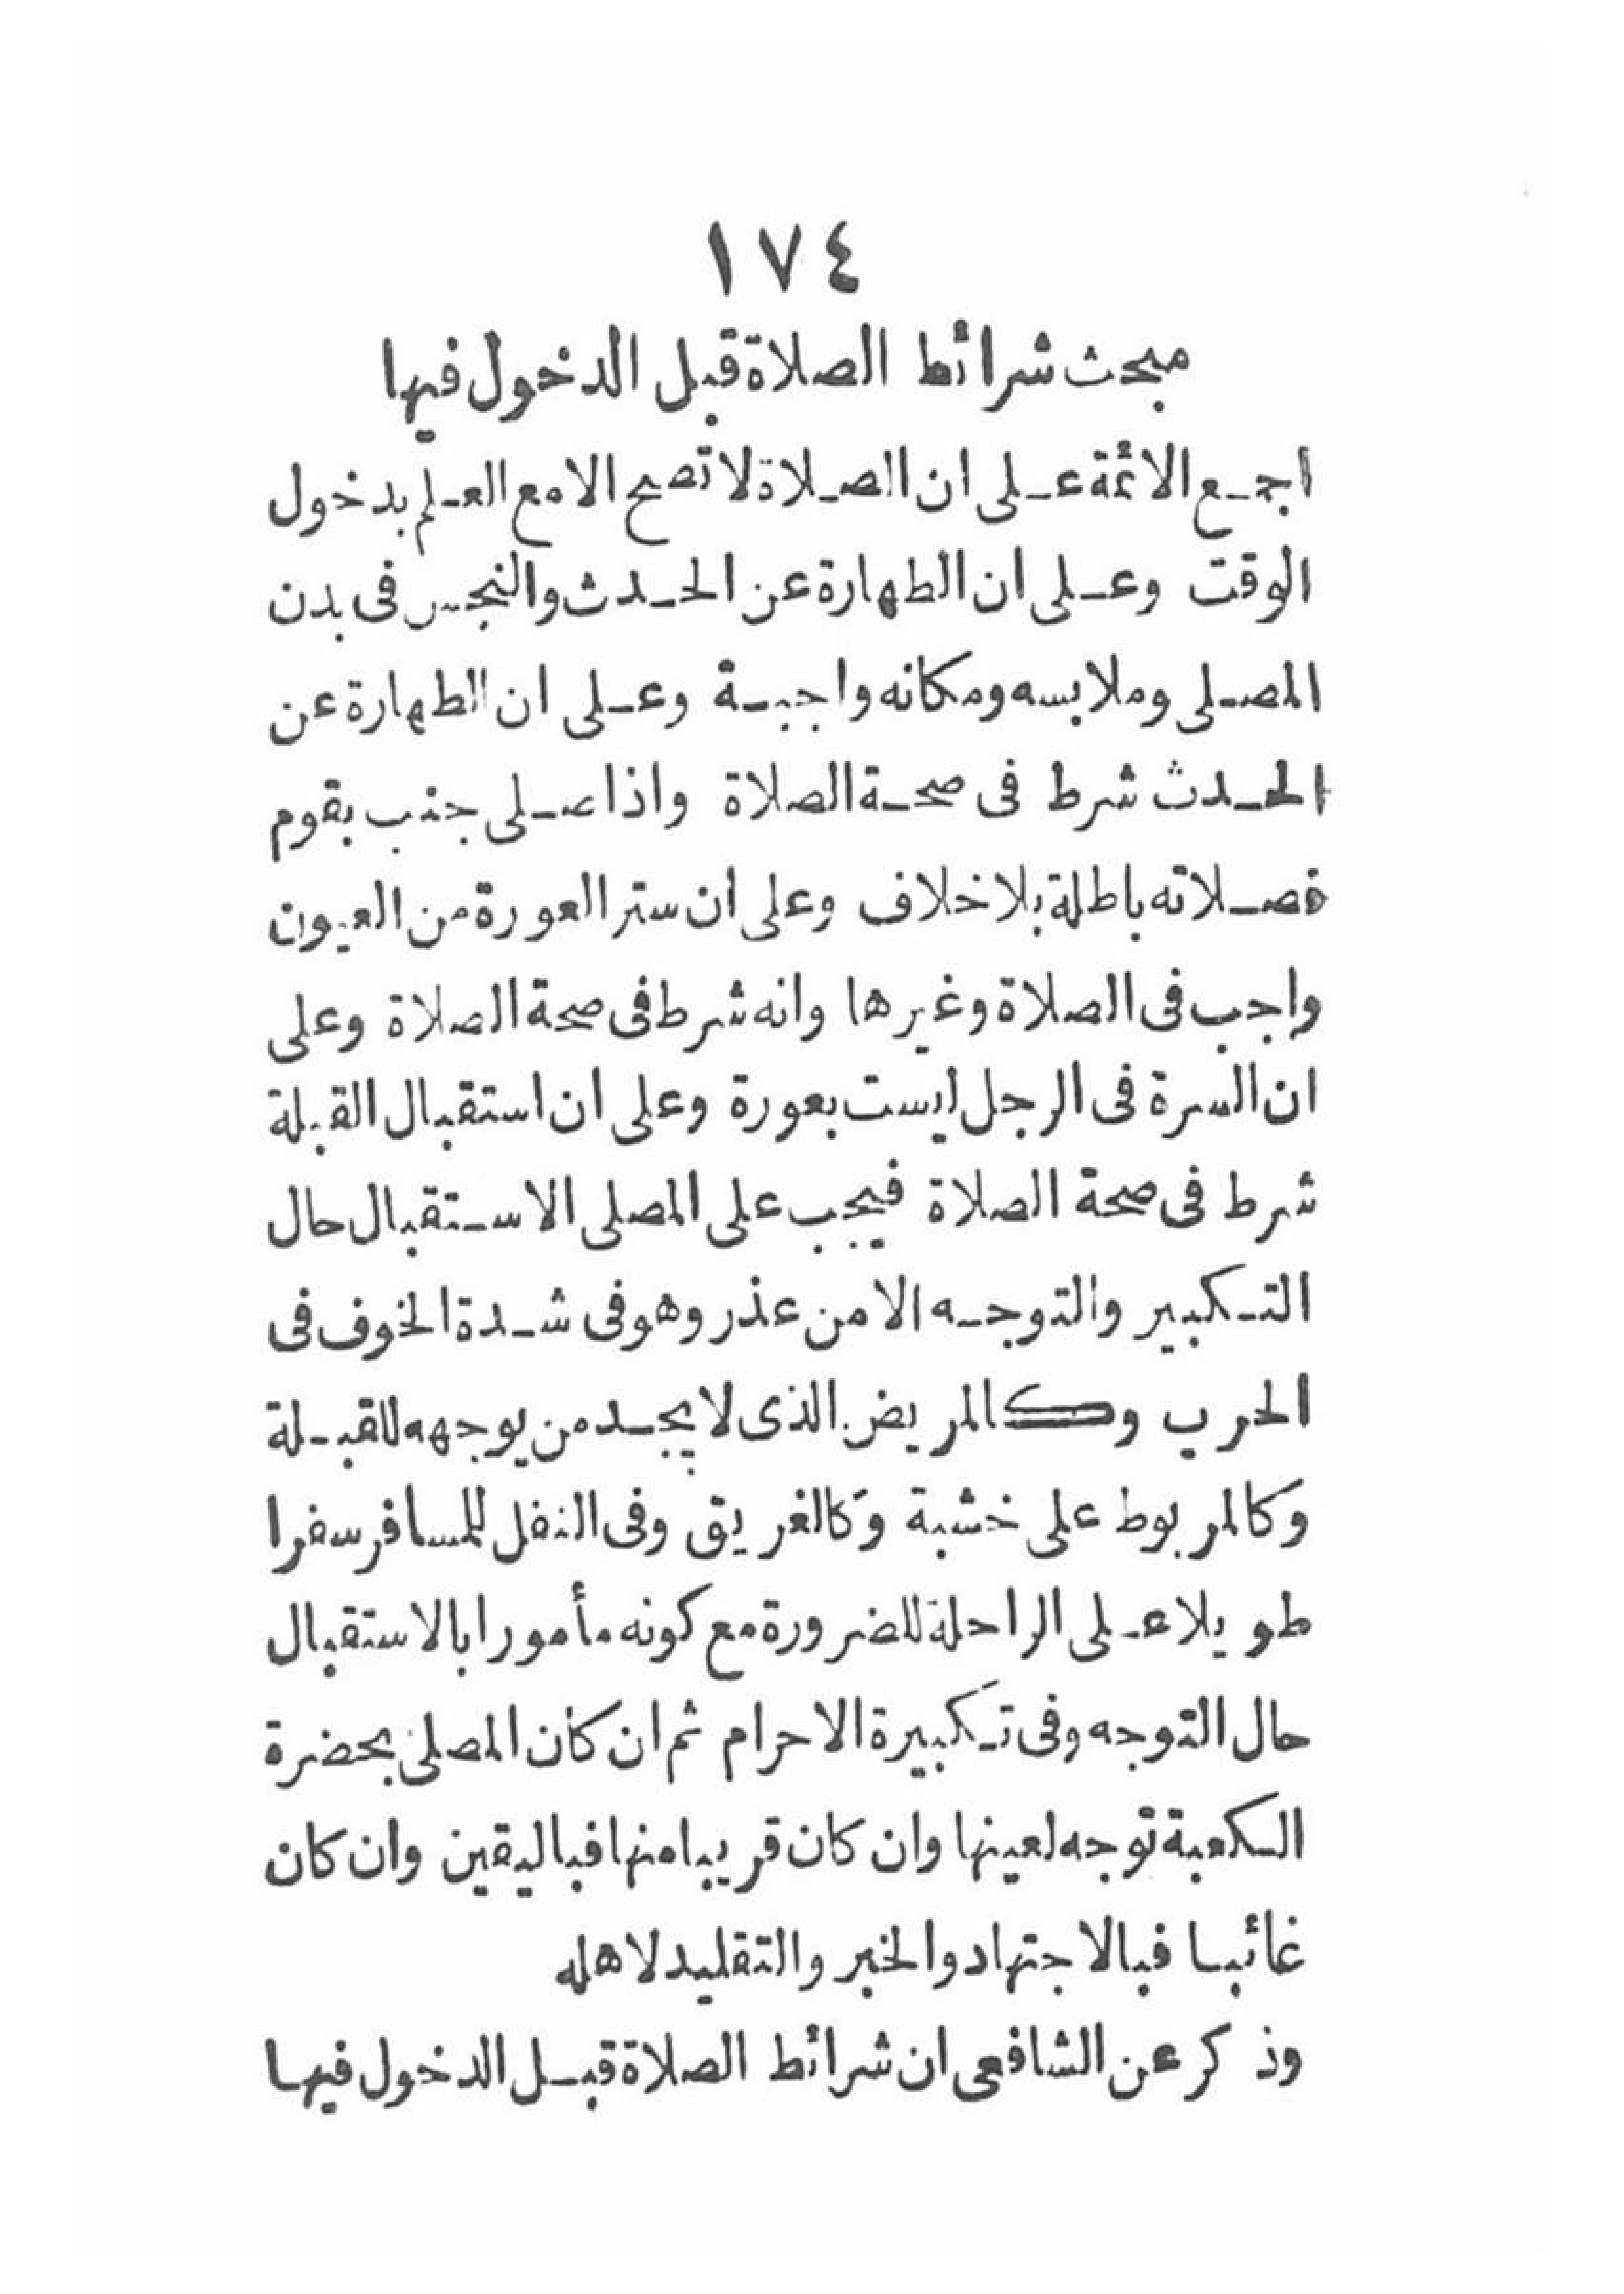 ١٧٤
مبحث شرائط الصلاة قبل الدخول فيها
اجمع الائمة على ان الصلاة لا تصح الا مع العلم بدخول
الوقت وعلى ان الطهارة عن الحدث والنجس فى بدن
المصلى وملابسه ومكانه واجبة وعلى ان الطهارة عن
الحدث شرط فى صحة الصلاة واذا صلى جنب بقوم
فصلاته باطلة بلا خلاف وعلى ان ستر العورة من العيون
واجب فى الصلاة وغيرها وانه شرط فى صحة الصلاة وعلى
ان السرة فى الرجل ليست بعورة وعلى ان استقبال القبلة
شرط فى صحة الصلاة فيجب على المصلى الاستقبال حال
التكبير والتوجه الا من عذر وهو فى شدة الخوف فى
الحرب وكالمريض الذى لا يجد من يوجهه للقبلة
وكالمربوط على خشبة وكالغريق وفى النفل للمسافر سفرا
طويلا على الراحلة للضرورة مع كونه مأمورا بالاستقبال
حال التوجه وفى تكبيرة الاحرام ثم ان كان المصلى بحضرة
الكعبة توجه لعينها وان كان قريبا منها فباليقين وان كان
غائبا فبالاجتهاد والخبر والتقليد لاهله
وذكر عن الشافعى ان شرائط الصلاة قبل الدخول فيها